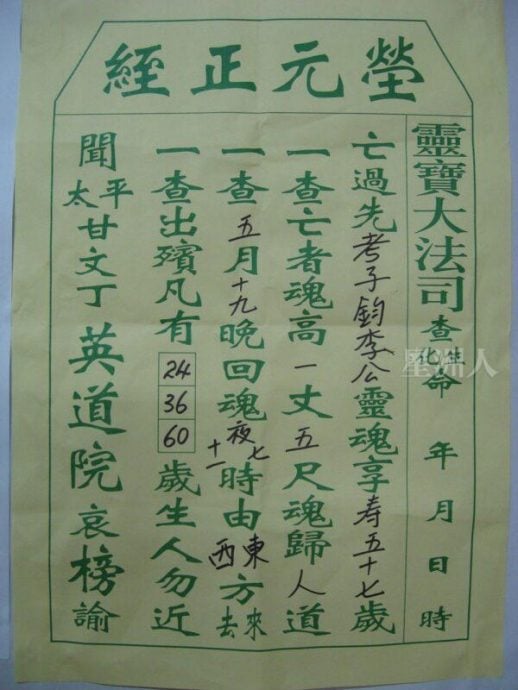 塋元正經
靈寶大法司查生化命 年 月 日 時
亡過先考子鈞李公靈魂享寿五十七歲
一查亡者魂高一丈五尺魂歸人道
一查五月十九晚回魂夜七十一時由東西方來去
一查出殯凡有24 36 60歲生人勿近
聞太平甘文丁英道院哀榜諭
星洲人